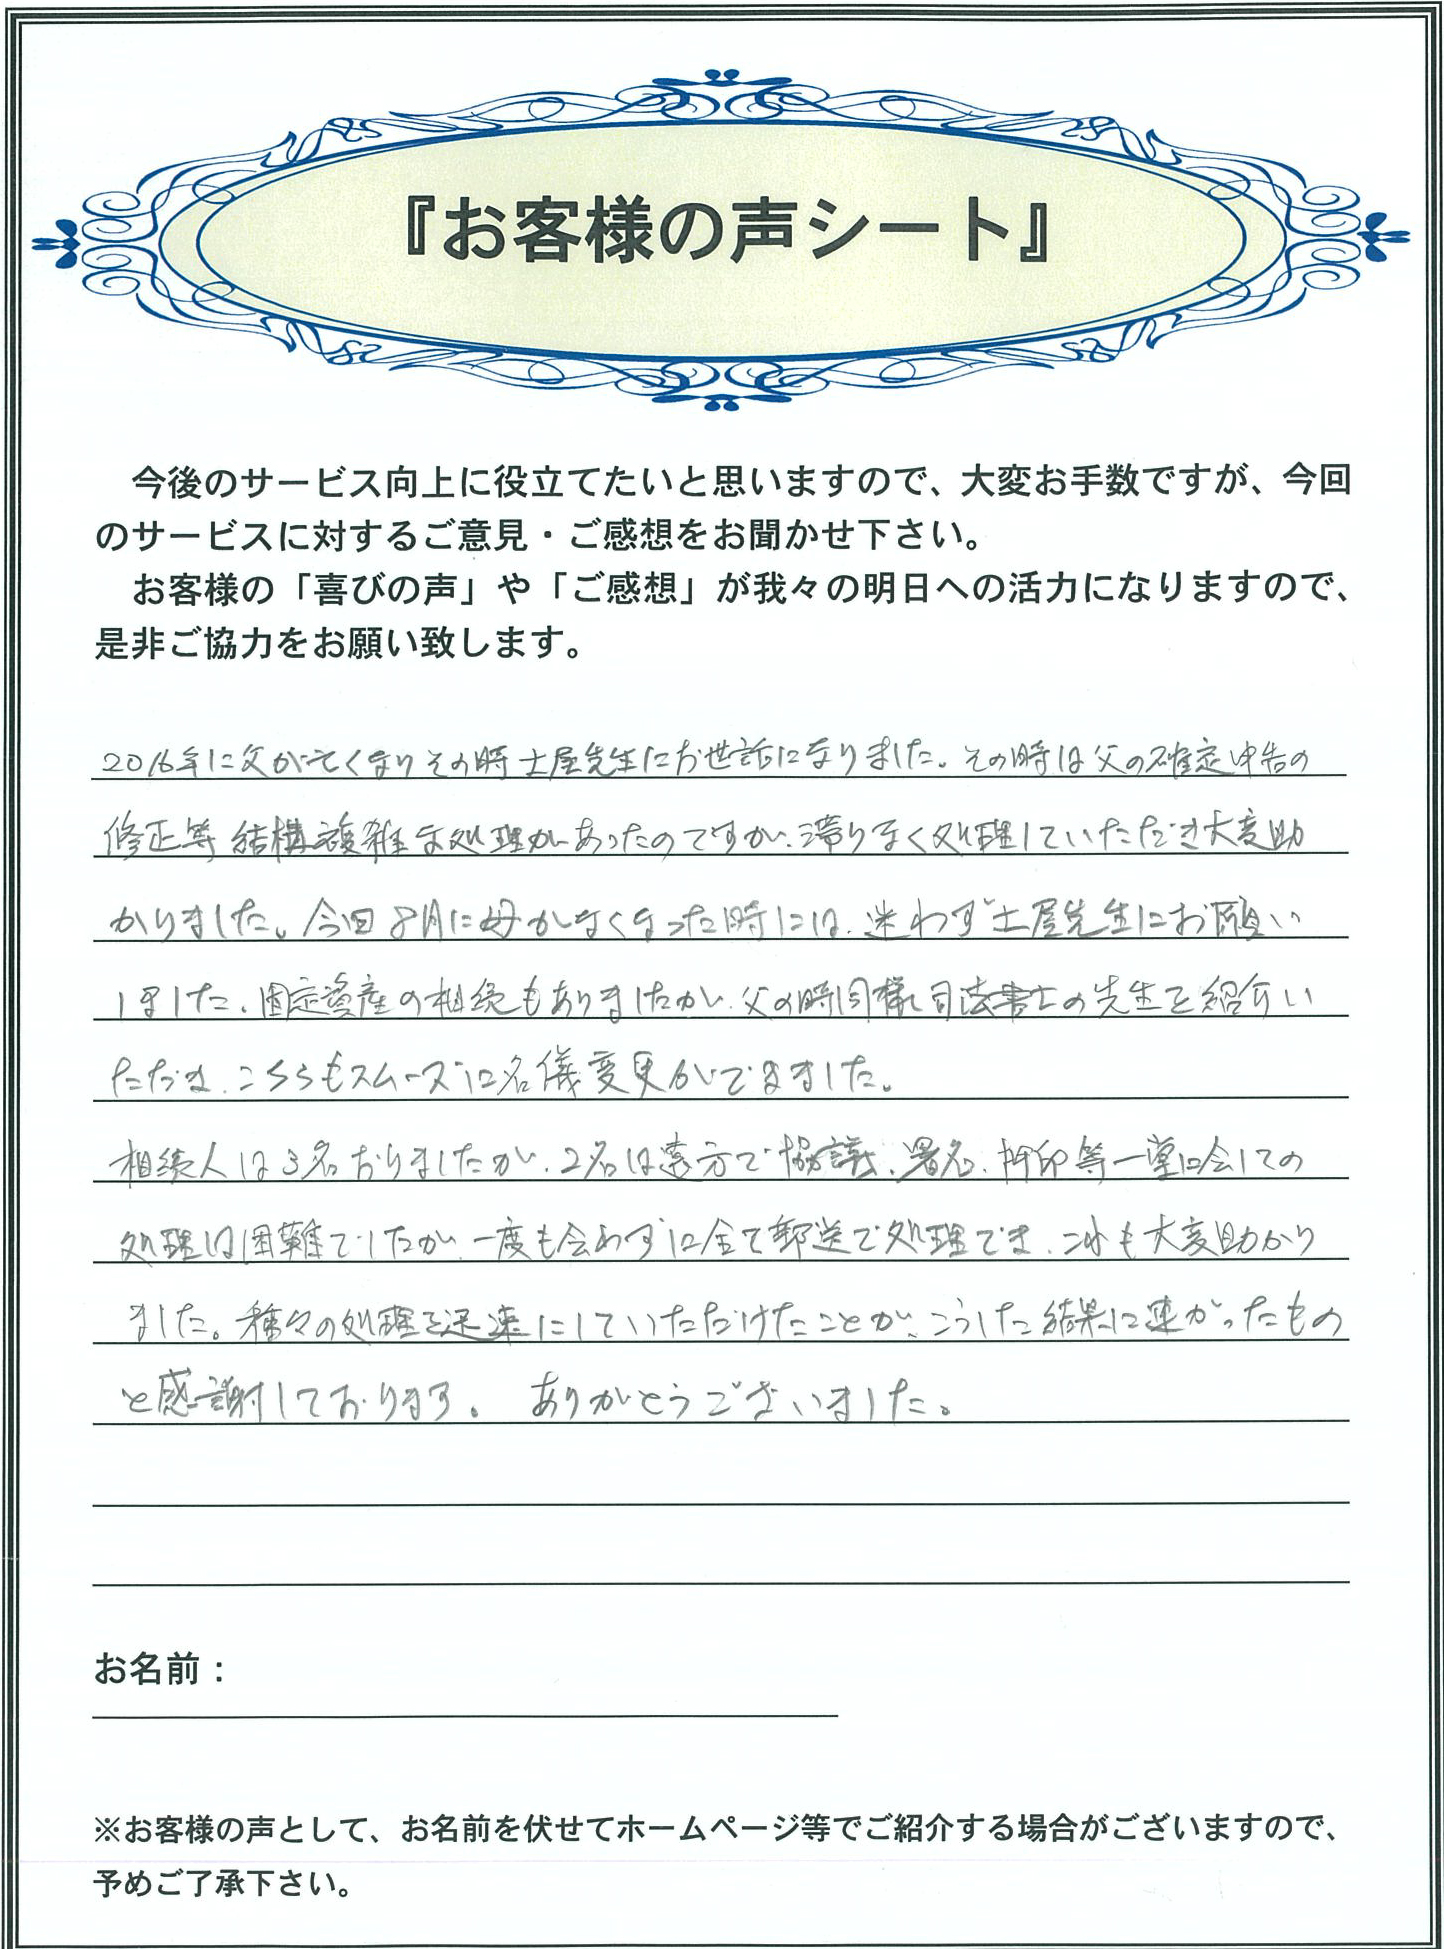 『お客様の声シート』
今後のサービス向上に役立てたいと思いますので、大変お手数ですが、今回
のサービスに対するご意見・ご感想をお聞かせ下さい。
お客様の「喜びの声」や「ご感想」が我々の明日への活力になりますので、
是非ご協力をお願い致します。
2016年に父が亡くなりその時土屋先生にお世話になりました。その時は父の確定申告の
修正等結構複雑な処理があったのですが、滞りなく処理していただき大変助
かりました。今回8月に母がなくなった時には、迷わず土屋先生にお願い
しました。固定資産の相続もありましたが、父の時同様司法書士の先生を紹介い
ただき、こちらもスムーズに名儀変更ができました。
相続人は3名おりましたが、2名は遠方で協議、署名、押印等一堂に会しての
処理は困難でしたが、一度も会わずに全て郵送で処理でき、これも大変助かり
ました。種々の処理を迅速にしていただけたことが、こうした結果に連がったもの
と感謝しております。 ありがとうございました。
お名前：
※お客様の声として、お名前を伏せてホームページ等でご紹介する場合がございますので、
予めご了承下さい。